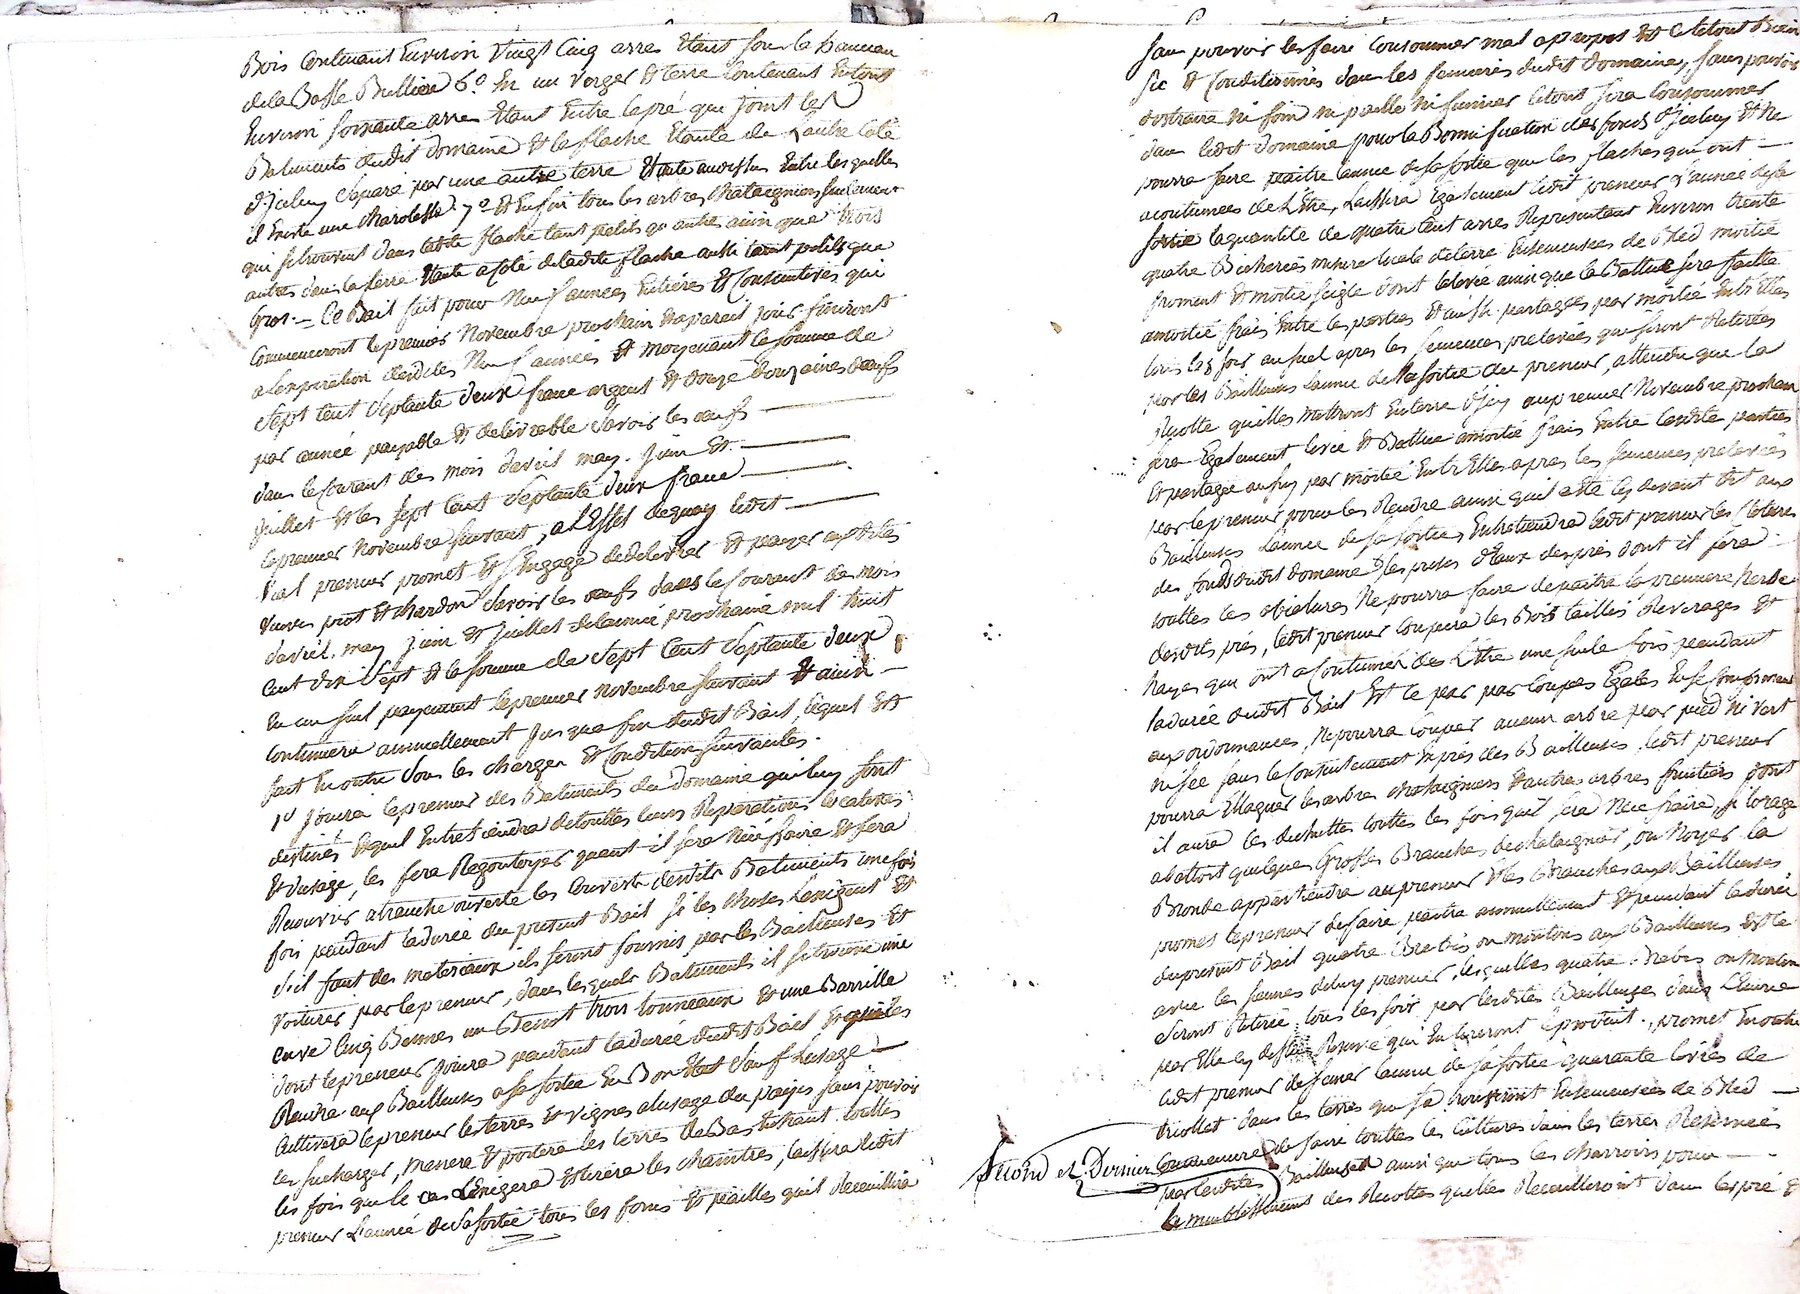 Bois Contenant Environ Vingt Cinq arres Etant sous le hameau
de la Basse Bulliere 6.° En un Verger et terre Contenant En tout
Environ soixante arres Etant Entre le pré qui joint les
Batiments dudit domaine et le flache Etante de Lautre Coté
d'Iceluy separé par une autre terre Etante au dessus Entre lesquelles
il Existe une Charolesse. 7.° et Enfin tous les arbres Chataigniers seulement
qui se trouvent dans ladite flache tant petits qu'autres ainsi que trois
autres dans la terre Etante a Coté de ladite flache aussi tant petits que
Gros. — Ce Bail fait pour Neuf années Entières et Consecutives qui
Commenceront le premier Novembre prochain et a pareil jour finiront
a lexpiration desdites Neuf années et moyenant la somme de
sept Cent septante deux franc argent et douze douzaines d'œufs
par année payable et delivrable savoir les œufs
dans le Courant des mois d'avril may. juin et
juillet et les sept Cent septante deux franc
le premier Novembre suivant, a L'Effet de quoy ledit
preneur promet et s'Engage de delivrer et payer auxdites
Veuves piot et chardon savoir les œufs dans le Courant de mois
d'avril. may juin et juillet de lannée prochaine mil huit
Cent dix sept et la somme de sept Cent septante deux
En un seul payement le premier novembre suivant et ainsi
Continuera annuellement jusque fin dudit Bail, lequel Est
fait En outre sous les charges et Conditions suivantes.
1.° jouira le preneur des Batiments du domaine qui luy sont
destinés Lequel Entretiendra de touttes leurs Reparations locatives
et d'usage, les fera Regouteyer quant il sera Necessaire et fera
Recouvrir a tranche ouverte les Couverts desdits Batiments une fois
fois pendant la durée du present Bail si les choses L'exigent et
s'il faut des materiaux ils seront fournis par les Bailleuses et
voiturés par le preneur, dans lesquels Batiments il se trouve une
Cuve Cinq Bennes un Benot trois tonneaux et une Barrille
dont le preneur jouira pendant la durée dudit Bail et qu'il les
Rendra aux Bailleuses a sa sortie En Bon Etat sauf L'usage
Cultivera le preneur les terres et vignes a lusage du pays sans pouvoir
les surcharger, menera et portera les terres de Bas En haut touttes
les fois que le cas L'Exigera et tirera les chaintres, laissera ledit
preneur L'année de sa sortie tous les foins et pailles qu'il Receuillira
sans pouvoir les faire Consommer mal a propos et Cetetout Bien
sec et Conditionnés dans les fenieres dudit domaine, sans pouvoir
distraire ni foin ni paille ni fumier le tout sera Consommer
dans ledit domaine pour la Bonnification des fonds d'Iceluy et Ne
pourra faire paitre lannée de sa sortie que les flaches qui ont
acoutumées de L'Etre, Laissera Egalement ledit preneur L'année de sa
sortie la quantité de quatre Cent arres Representant Environ trente
quatre Bicherées mesure locale de terre Ensemensées de Bled moitié
froment et moitié seigle dont la levée ainsi que la Battue sera faitte
a moitié frais Entre les parties Et aussi partagés par moitié Entr'Elles
tous les fois au fuel apres les semences prelevées qui seront Retirées
par les Bailleuses Lannée de la sortie du preneur, attendu que la
Recolte qu'elles mettront En terre d'Icy au premier Novembre prochain
sera Egalement levée et Battue a moitié frais Entre lesdites parties
Et partagée aussy par moitié Entr'Elles apres les semences prelevées
par le preneur pour les Rendre ainsi qu'il a Eté Cy devant dit aux
Bailleuses Lannée de sa sortie, Entretiendra ledit preneur les Clotures
des fonds dudit domaine et les prises d'Eaux des prés dont il fera
touttes les Rielures Ne pourra faire de paitre la premiere herbe
desdits prés, ledit preneur Coupera les Bois taillis Reverages et
hayes qui ont acoutumés de L'Etre une seule fois pendant
la durée dudit Bail Et ce par par Coupes Egales En se Conformant
aux ordonnances, Ne pourra Couper aucun arbre par pied ni vert
ni sec sans le Consentement Exprès des Bailleuses, ledit preneur
pourra Ellaguer les arbres chataigniers Et autres arbres fruitiers dont
il aura les dechuttes touttes les fois qu'il sera Necessaire, si l'orage
abattoit quelques Grosses Branches de chataignier, ou Noyer la
Bronde appartiendra au preneur Et les Branches aux Bailleuses
promet le preneur de faire paitre annuellement Et pendant la durée
du present Bail quatre Brebis ou moutons aux Bailleuses Et le
avec les siennes deluy preneur, lesquelles quatre Brebis ou Moutons
seront Retirés tous les soir par lesdites Bailleuses dans L'Ecurie
par Elle Cy dessus Reservé qui En tireront le produit., promet En outre
ledit preneur de semer Lannée de sa sortie quarante livres de
triollet dans les terres qui se trouveront Ensemensées de Bled
Conviennent de faire touttes les Cultures dans les terres Reservées
par lesdites Bailleuses ainsi que tous les charrois pour
la meublissement des Recoltes quelles Receuilleront dans les pré et
Second et Dernier